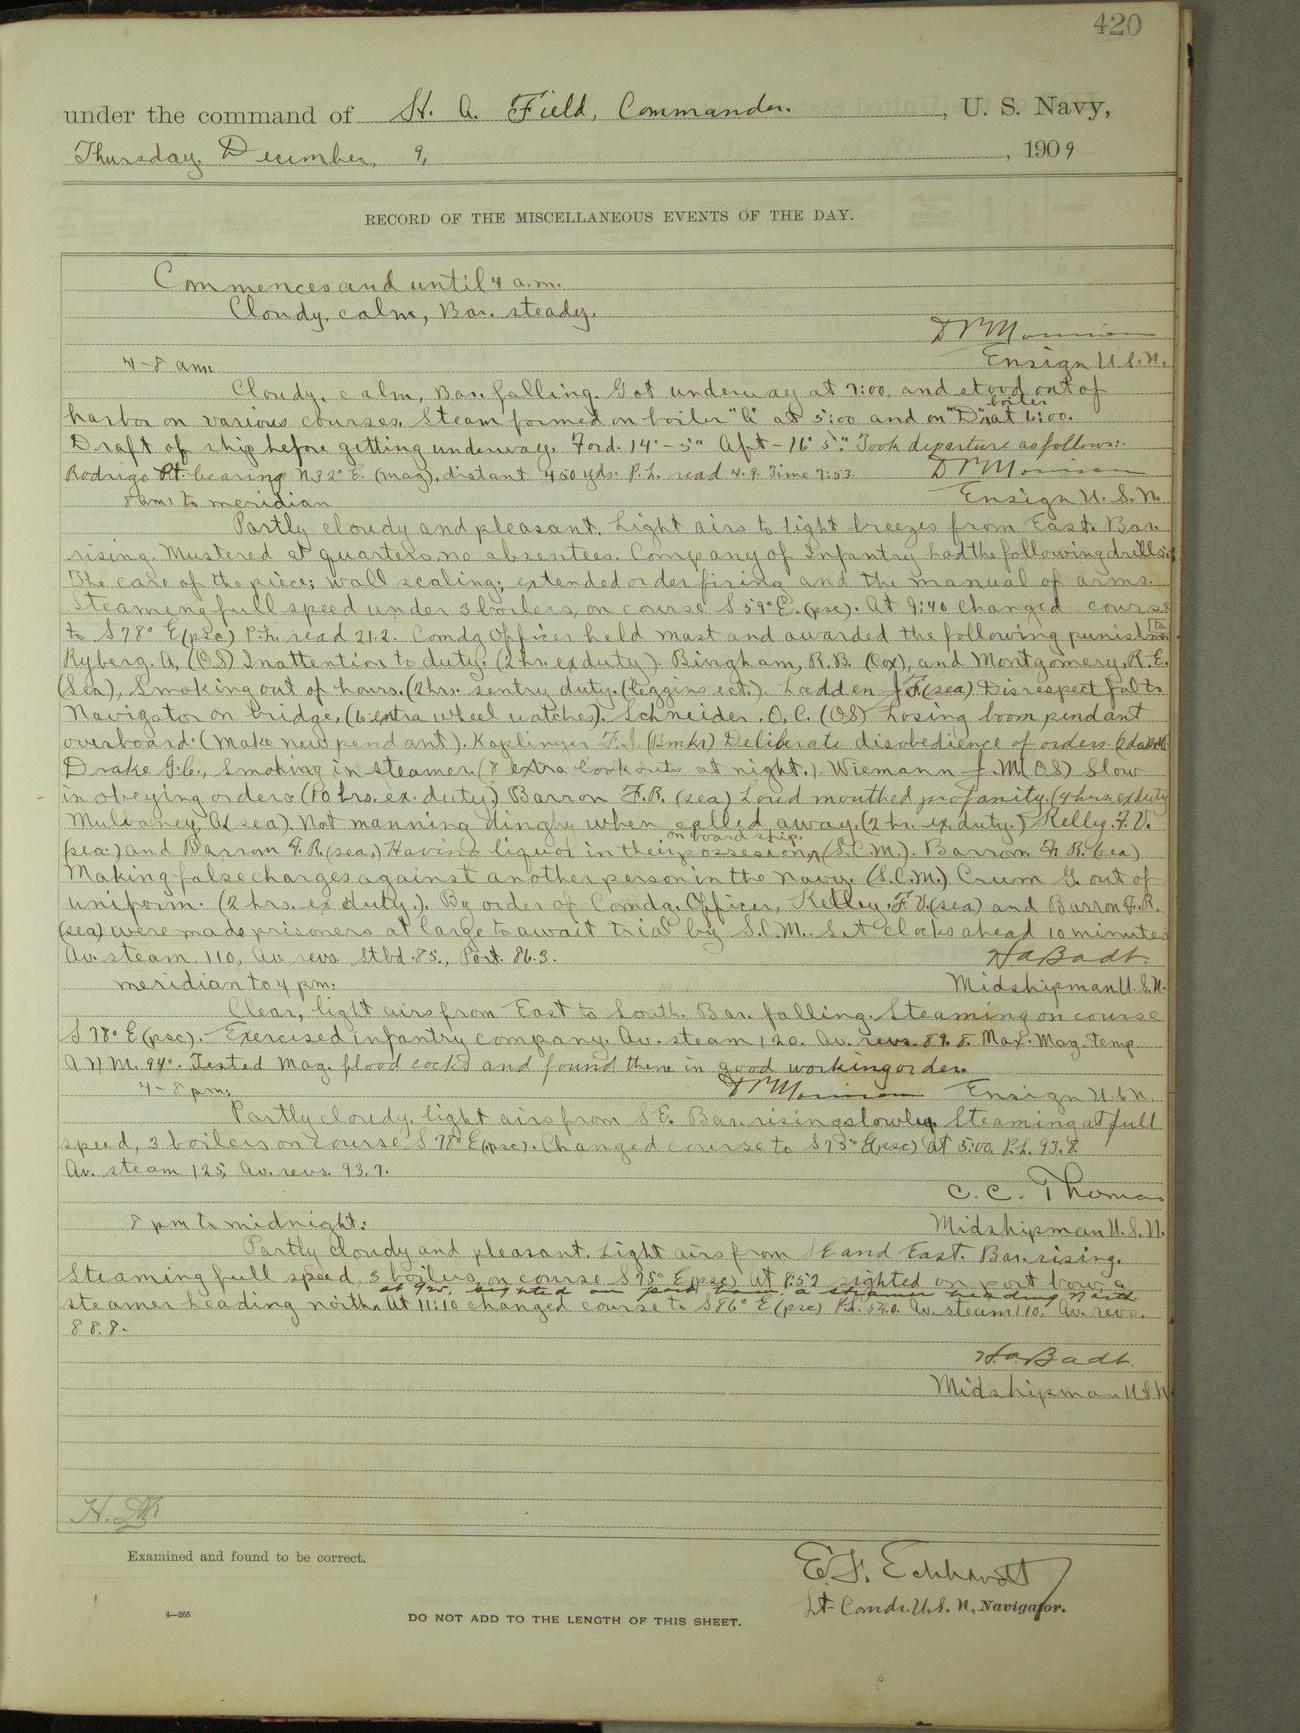 420
under the command of H. A. Field, Commander. , U. S. Navy,
Thursday, December, 9, , 1909
RECORD OF THE MISCELLANEOUS EVENTS OF THE DAY.
Commences and until 4 a.m.
Cloudy, calm, Bar. steady.
Ensign U.S.N.
4-8 am.
Cloudy, calm, Bar. falling. Got underway at 7:00 and stood out of
harbor on various courses. Steam formed on boiler at 5:00 and on "D" boiler at 6:00.
Draft of ship before getting underway. Ford. 14'-5" Aft-16' 5". Took departure as follows:-
Rodrigo Pt. bearing N32°E. (mag), distant 450 yds. P.L. read 4.9. Time 7:53.
Ensign U.S.N.
8 am. to meridian
Partly cloudy and pleasant. Light airs to light breezes from East. Bar.
rising. Mustered at quarters no absentees. Company of Infantry had the following drills:
The care of the piece; wall scaling; extended order firing and the manual of arms.
Steaming full speed under 3 boilers, on course S59°E. (psc). At 9:40 changed course
to S78°E (psc) P.L. read 21.2. Comdg Officer held mast and awarded the following
Ryberg. A, (OS) Inattention to duty. (2 hr. ex duty). Bingham, R.B. (Cox), and Montgomery, R.E.
(Sea), Smoking out of hours. (2 hrs. sentry duty. (leggins ect.). Ladden J.F. (sea) Disrespectful to
Navigator on bridge, (6 extra wheel watches). Schneider. O.C. (OS) Losing boom pendant
overboard. (Make new pendant). Kaplinger F.J. (Bmkr) Deliberate disobedience of orders.
Drake G.C., Smoking in steamer. (8 extra lookouts at night.). Wiemann J.M (OS) Slow
in obeying orders. (10 hrs. ex. duty.) Barron F.R. (sea) Loud mouthed profanity. (4 hrs. ex duty
Mulvaney, A (sea). Not manning dinghy when called away. (2 hr. ex. duty.) Kelley. F.V.
(sea.) and Barron F.R. (sea,) Having liquor in their possession on board ship. (S.C.M.). Barron F.R. (sea)
Making false charges against another person in the Navy. (S.C.M.) Crum G. out of
uniform. (2 hrs. ex duty.). By order of Comdg. Officer, Kelley. F.V. (sea) and Barron F.R.
(sea) were made prisoners at large to await trial by S.C.M. Set clocks ahead 10 minutes
Av. steam 110, Av. revs. Stbd. 85., Port. 86.3.
H.A. Badt.
Midshipman U.S.N.
meridian to 4 pm.
Clear, light airs from East to South. Bar. falling. Steaming on course
S78°E (psc). Exercised infantry company. Av. steam 120. Av. revs. 89.8. Max. Mag. temp
94°. Tested Mag. flood cocks and found them in good working order.
4-8 pm: Ensign U.S.N.
Partly cloudy, light airs from SE. Bar. rising slowly. Steaming at full
speed, 3 boilers on course S78°E (psc). Changed course to S75°E (psc) at 5:00. P.L. 93.8.
Av. steam 125, Av. revs. 93.7.
C. C. Thomas
Midshipman U.S.N.
8 pm to midnight:
Partly cloudy and pleasant. Light airs from SE and East. Bar. rising.
Steaming full speed, 3 boilers, on course S75°E (psc) At 8:52 sighted on port bow a
sighted on port bow a steamer heading North
steamer heading north. At 11:10 changed course to S86°E (psc) Av. steam 110. Av. revs.
88.8.
H.A. Badt
Midshipman U.S.N.
Examined and found to be correct.
E. F. Eckhardt
Lt-Comdr. U.S.N., Navigator.
4—265
DO NOT ADD TO THE LENGTH OF THIS SHEET.